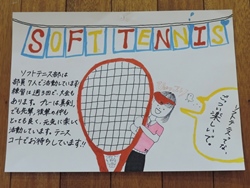 SOFT TENNIS
ソフトテニス部は
部員7人で活動しています
練習は週5日で、大会も
あります。プレーは真剣、
でも先輩、後輩の仲も
とっても良く、元気に楽しく
活動しています。テニス
コートでお待ちしています!!